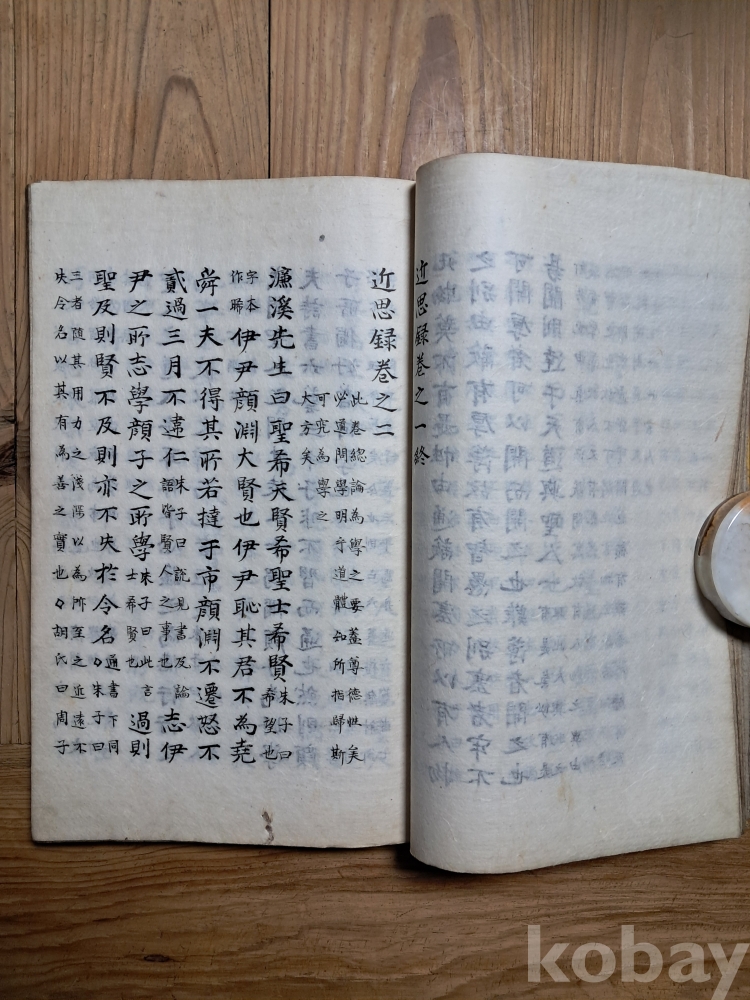 近思録卷之一終
近思録卷之二
此卷總論為學之要盖尊德性矣
必道問學明乎道體知所指歸斯
可究為學之
大方矣
濂溪先生曰聖希天賢希聖士希賢朱子曰希望也
字本作睎伊尹顔淵大賢也伊尹恥其君不為堯
舜一夫不得其所若撻于市顔淵不遷怒不
貳過三月不違仁朱子曰說見書及論語皆賢人之事也志伊
尹之所志學顔子之所學朱子曰此言士希賢也過則
聖及則賢不及則亦不失於令名通書下同々朱子曰
三者隨其用力之淺深以為所至之近遠不
失令名以其有為善之實也々胡氏曰周子
kobay